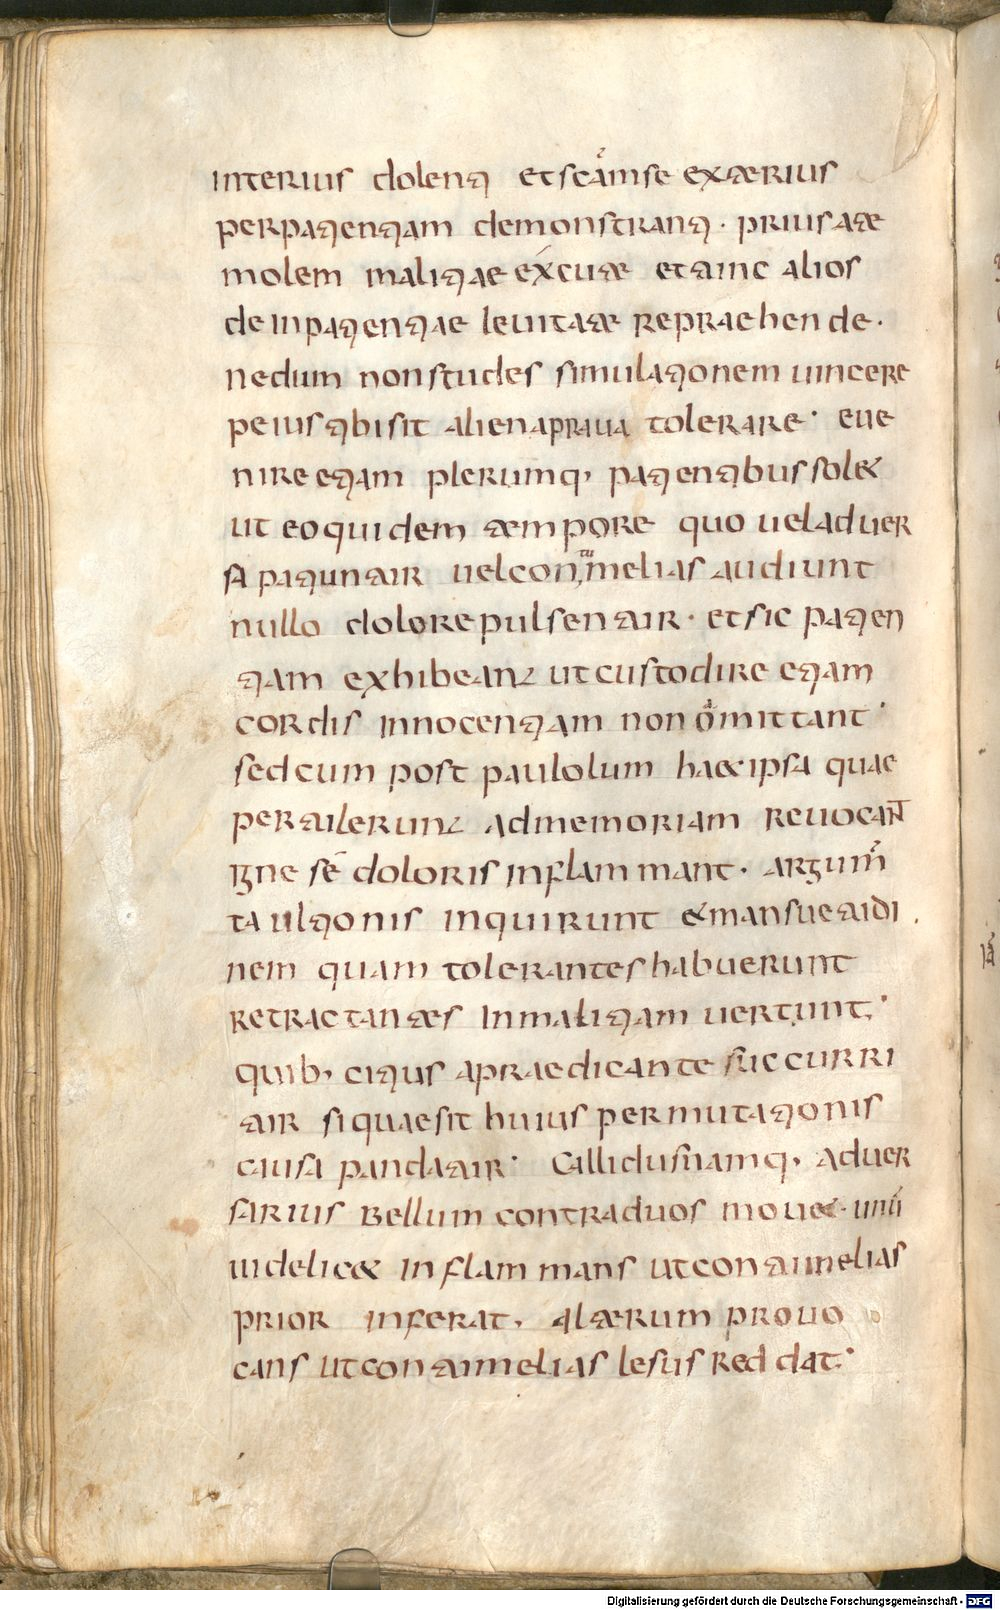 interius dolenti et scam se exterius
per patientiam demonstranti · prius a te
molem malitiae excute et tunc alios
de inpatientiae leuitate repraehende ·
ne dum non studes simulationem uincere
peius tibi sit aliena praua tolerare · eue
nire etiam plerumq, patientibus solet
ut eo quidem tempore quo uel aduer
sa patiuntur uel contumelias audiunt
nullo dolore pulsentur · et sic patien
tiam exhibeant ut custodire etiam
cordis innocentiam non omittant ·
sed cum post paululum haec ipsa quae
pertulerunt ad memoriam reuocant
igne sē doloris inflammant · argum
ta ultionis inquirunt et mansuetudi
nem quam tolerantes habuerunt
retractantes in malitiam uertunt ·
quib, citius a praedicante succurri
tur si quae sit huius permutationis
causa pandatur · Callidus namq, aduer
sarius bellum contra duos mouet · unū
uidelicet inflammans ut contumelias
prior inferat, alterum prouo
cans ut contumelias lesus reddat ·
Digitalisierung gefördert durch die Deutsche Forschungsgemeinschaft - DFG